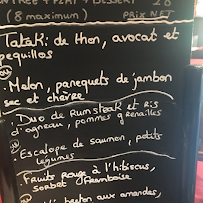 ENTRÉE + PLAT + DESSERT 26
(8 maximum) PRIX NET
Tataki de thon, avocat et
pequillos
. Melon, panequets de jambon
sec et chèvre
. Duo de Rumsteak et Ris
d'agneau, pommes grenailles
. Escalope de saumon, petits
légumes
. Fruits rouge à l'hibiscus,
sorbet framboise
breton aux amandes,